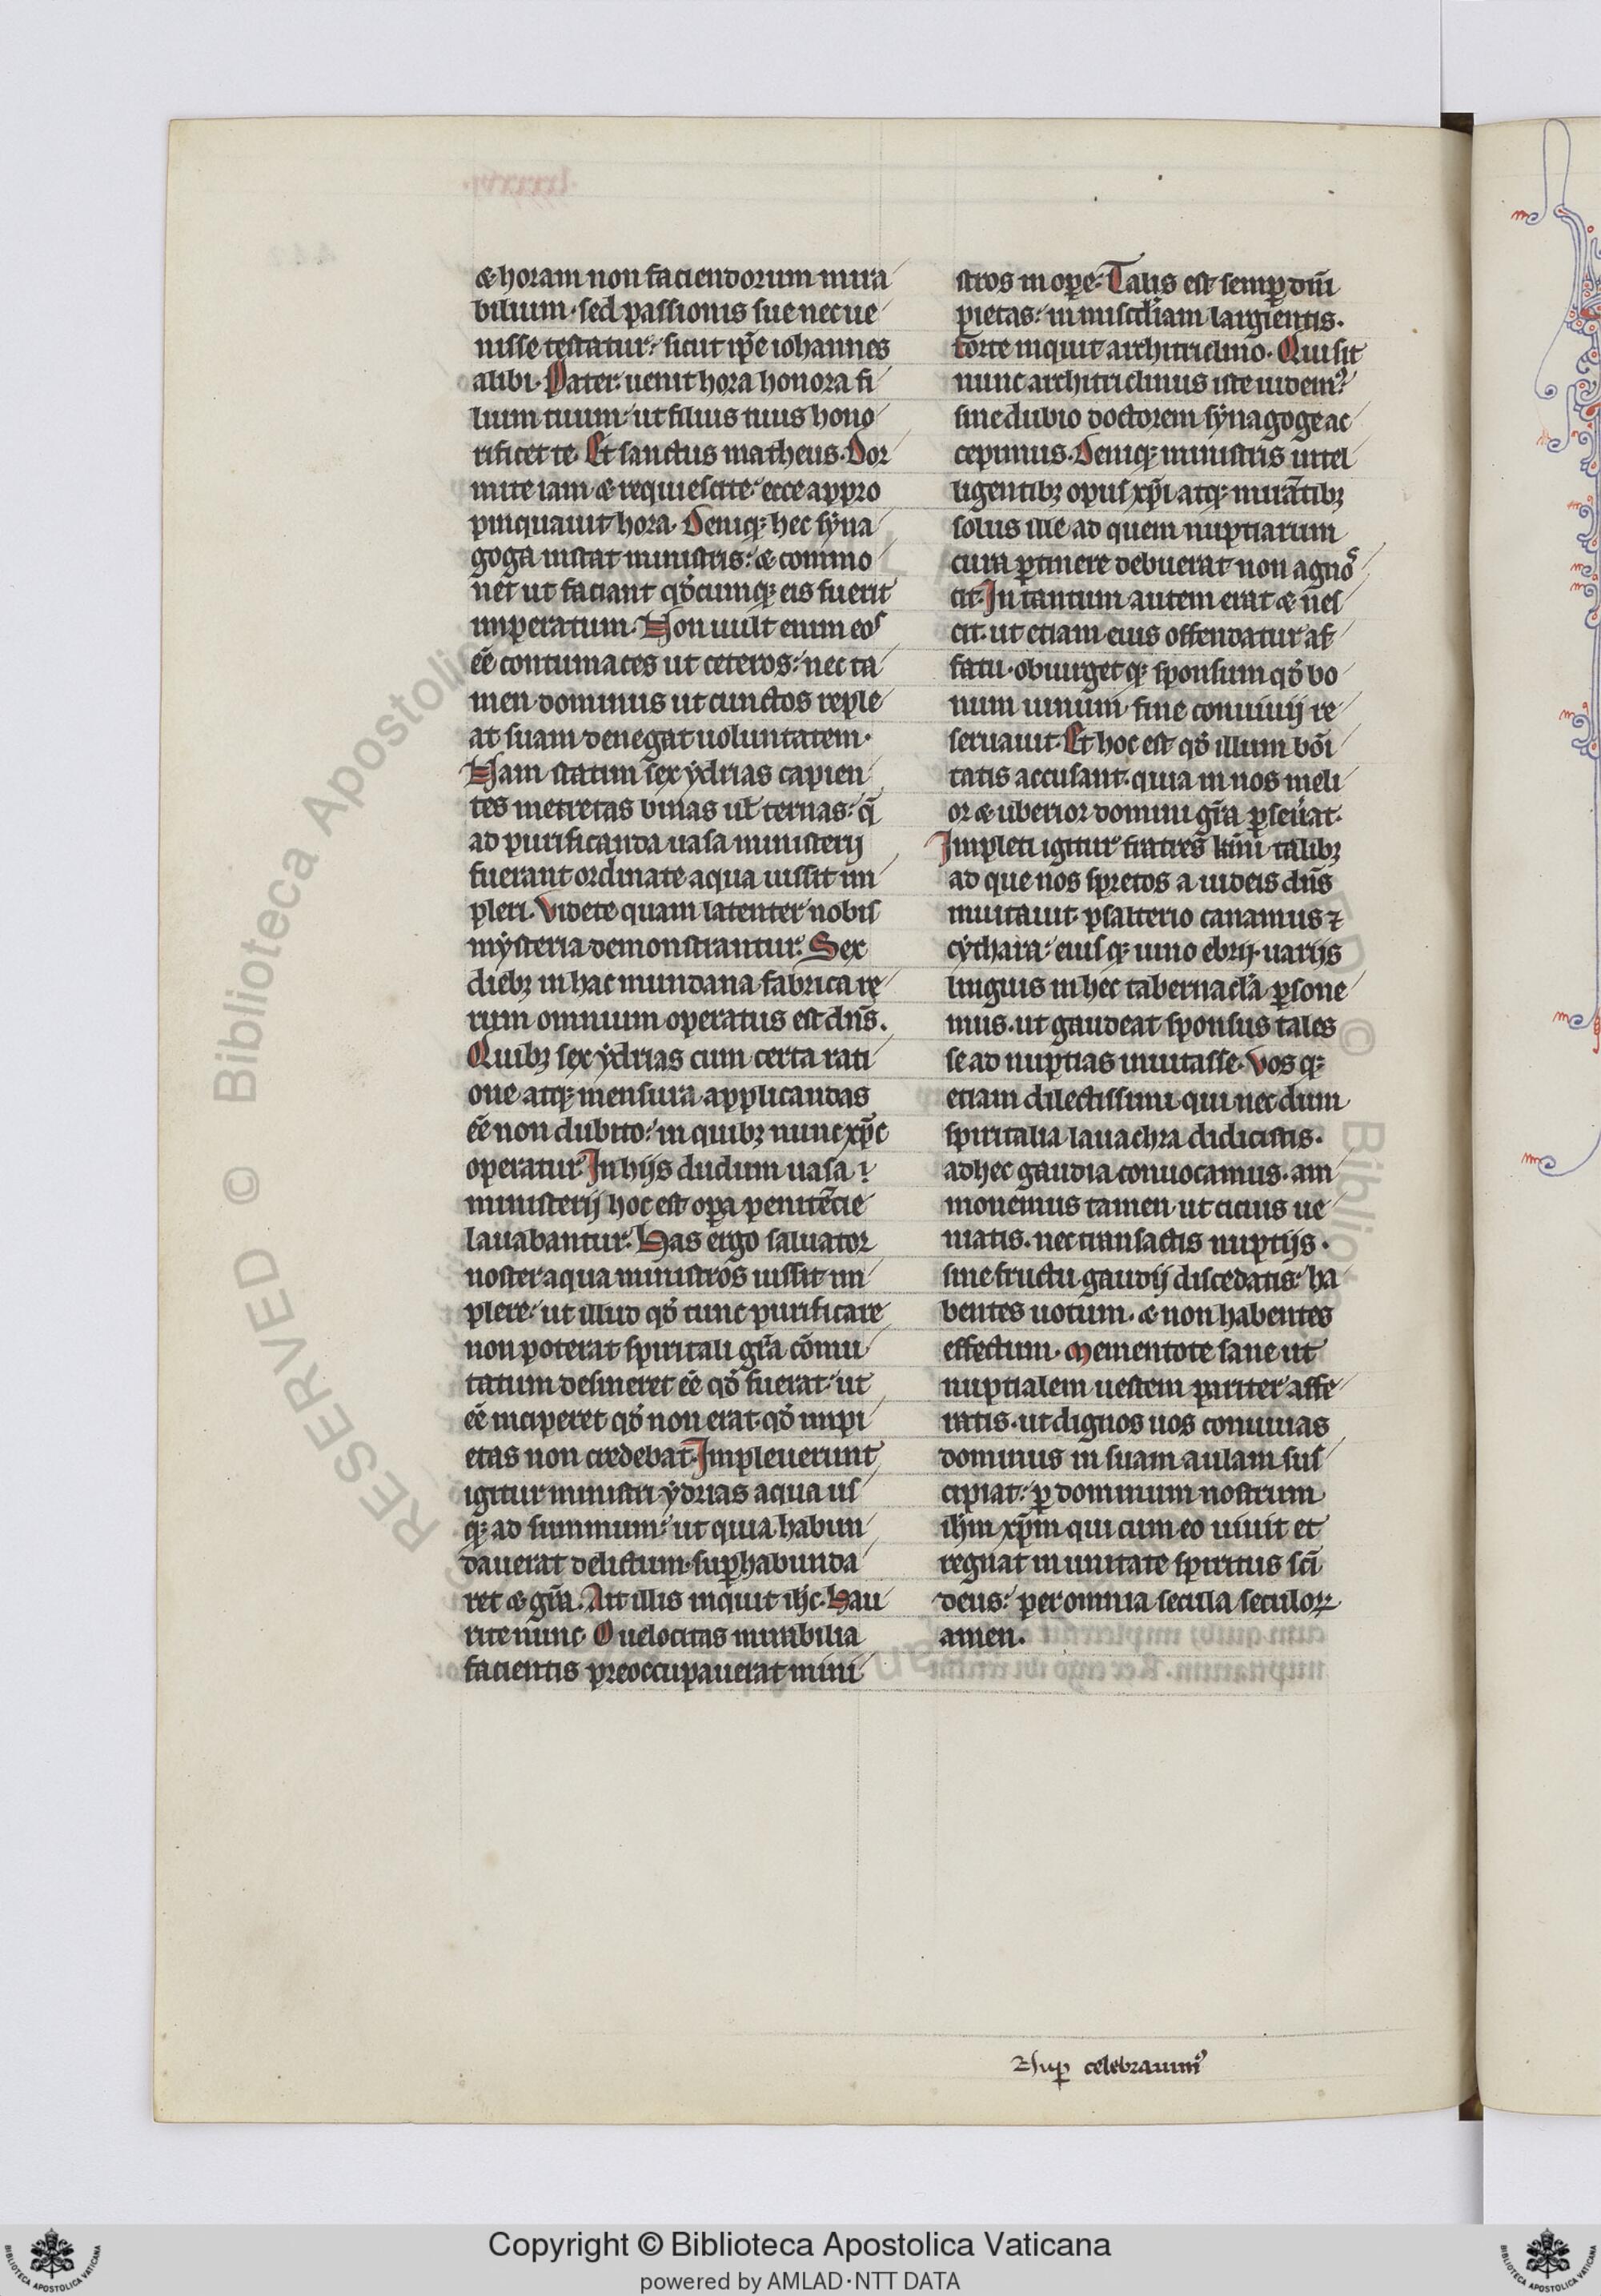 & horam non faciendorum mira
bilium · sed passionis sue nec ue
nisse testatur: sicut ip̄e iohannes
alibi · Pater uenit hora honora fi
lium tuum · ut filius tuus hono
rificet te. Et sanctus matheus. Dor
mite iam & requiescite: ecce appro
pinquauit hora. Deniq; hec syna
goga instat ministris: & commo
net ut faciant qd̓cumq; eis fuerit
imperatum. Non uult enim eos
eē contumaces ut ceteros: nec ta
men dominus ut cunctos reple
at suam denegat uoluntatem ·
Nam statim sex ydrias capien
tes metretas binas ul̄ ternas: q̄
ad purificanda uasa ministerij
fuerant ordinate aqua iussit im
pleri. Videte quam latenter nobis
mysteria demonstrantur. Sex
dieb; in hac mundana fabrica re
rum omnium operatus est dn̄s.
Quib; sex ydrias cum certa rati
one atq; mensura applicandas
eē non dubito: in quib; nunc xp̄c
operatur. In hijs dudum uasa
ministerij hoc est oꝑa penitēcie
lauabantur. Has ergo saluator
noster aqua ministros iussit im
plere: ut illud qd̓ tunc purificare
non poterat spiritali grā cōmu
tatum desineret eē qd̓ fuerat · ut
eē inciperet qd̓ non erat · qd̓ impi
etas non credebat. Impleuerunt
igitur ministri ydrias aqua us
q; ad summum: ut quia habun
dauerat delictum · suꝑhabunda
ret & grā. Ait illis inquit ihc̄. Hau
rite nunc. O uelocitas mirabilia
facientis preoccupauerat mini
stros in oꝑe. Talis est semꝑ dn̄i
pietas: in misc̄diam largientis.
Ferte inquit architriclino. Quis sit
nunc architriclinus iste uidem᾿
sine dubio doctorem synagoge ac
cepimus. Deniq; ministris intel
ligentib; opus xp̄i atq; mirātib;
solus ille ad quem nuptiarum
cura ꝑtinere debuerat non agnos
cit. In tantum autem erat & nes
cit · ut etiam eius offendatur af
fatu · obiurgetq; sponsum qd̓ bo
num uinum fine conuiuij re
seruauit. Et hoc est qd̓ illum boī
tatis accusant · quia in nos meli
or & uberior domini grā ꝑseūat.
Impleti igitur fratres kmī talib;
ad que nos spretos a iudeis dn̄s
inuitauit · psalterio canamus ⁊
cythara: eiusq; uino ebrij · uarijs
linguis in hec tabernacl̄a ꝑsone
mus · ut gaudeat sponsus tales
se ad nuptias inuitasse. Vos q;
etiam dilectissimi qui nec dum
spiritalia lauachra didicistis ·
ad hec gaudia conuocamus · am
monemus tamen · ut cicius ue
niatis · nec transactis nuptijs ·
sine fructu gaudij discedatis: ha
bentes uotum · & non habentes
effectum. Mementote sane ut
nuptialem uestem pariter affe
ratis · ut dignos uos conuiuas
dominus in suam aulam sus
cipiat: ꝑ dominum nostrum
ihm̄ xp̄m qui cum eo uiuit et
regnat in unitate spiritus sc̄i
deus: per omnia secula seculoꝝ
amen.
Nuꝑ celebrauim᾿
RESERVED © Biblioteca Apostolica
Copyright © Biblioteca Apostolica Vaticana
powered by AMLAD·NTT DATA